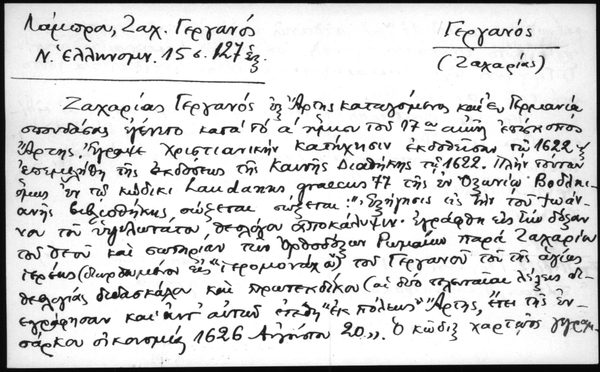 Λάμπρου, Ζαχ. Γεργανός
Ν. Ἑλληνομν. 15 σ. 127 ἑξ.
Γεργανός
(Ζαχαρίας)
Ζαχαρίας Γεργανός ἐξ Ἄρτης καταγόμενος καὶ ἐν Γερμανίᾳ
σπουδάσας ἐγένετο κατὰ τὸ α' ἥμισυ τοῦ 17ου αἰῶνος ἐπίσκοπος
Ἄρτης. Ἔγραψε Χριστιανικὴν κατήχησιν ἐκδοθεῖσαν τῷ 1622
ἐπεμελήθη τῆς ἐκδόσεως τῆς Καινῆς Διαθήκης τῷ 1622. Πλὴν τούτων
ὅμως ἐν τῷ κώδικι Laudianus graecus 77 τῆς ἐν Ὀξωνίῳ Βοδληι-
ανῆς βιβλιοθήκης σώζεται σώζεται: "Ἐξήγησις εἰς τὴν τοῦ Ἰωάν-
νου τοῦ ὑψηλοτάτου θεολόγου ἀποκάλυψιν. ἐγράφθη εἰς τὴν δόξαν
τοῦ θεοῦ καὶ σωτηρίαν τῶν Ὀρθοδόξων Ρωμαίων παρὰ Ζαχαρίου
ἱερέως (διορθωμένον εἰς "ἱερομονάχου) τοῦ Γεργανοῦ τοῦ τῆς ἁγίας
θεολογίας διδασκάλου καὶ πρωτεκδίκου (αἱ δύο τελευταῖαι λέξεις δι-
εγράφησαν καὶ ἀντ' αὐτῶν ἐτέθη "ἐκ πόλεως" Ἄρτης, ἔτει τῆς ἐν-
σάρκου οἰκονομίας 1626 Αὐγούστου 20". Ὁ κῶδιξ χαρτῷος